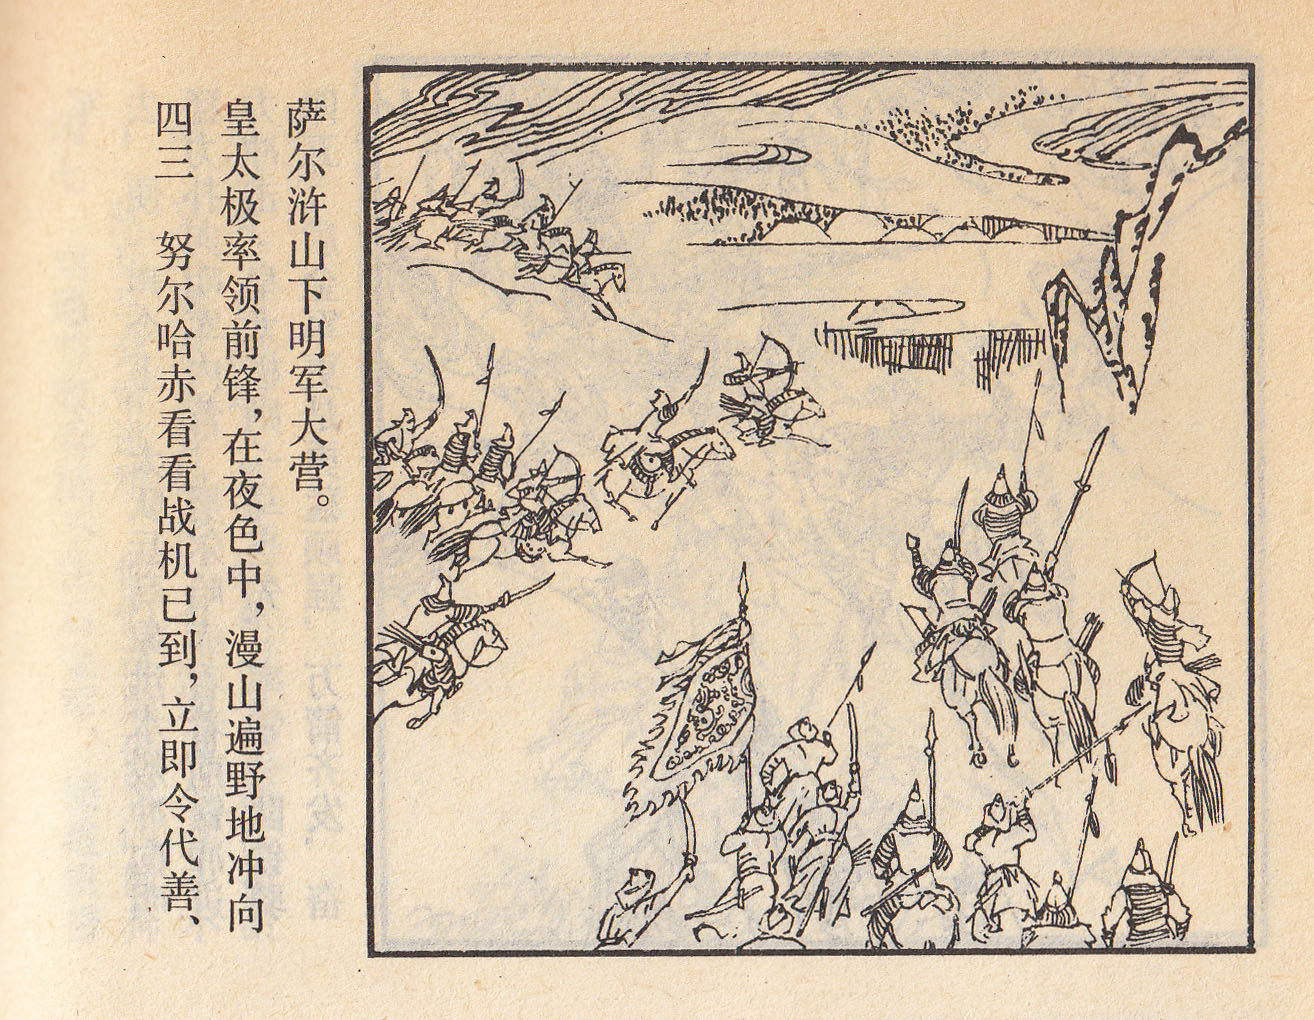 四三　努尔哈赤看看战机已到，立即令代善、
皇太极率领前锋，在夜色中，漫山遍野地冲向
萨尔浒山下明军大营。